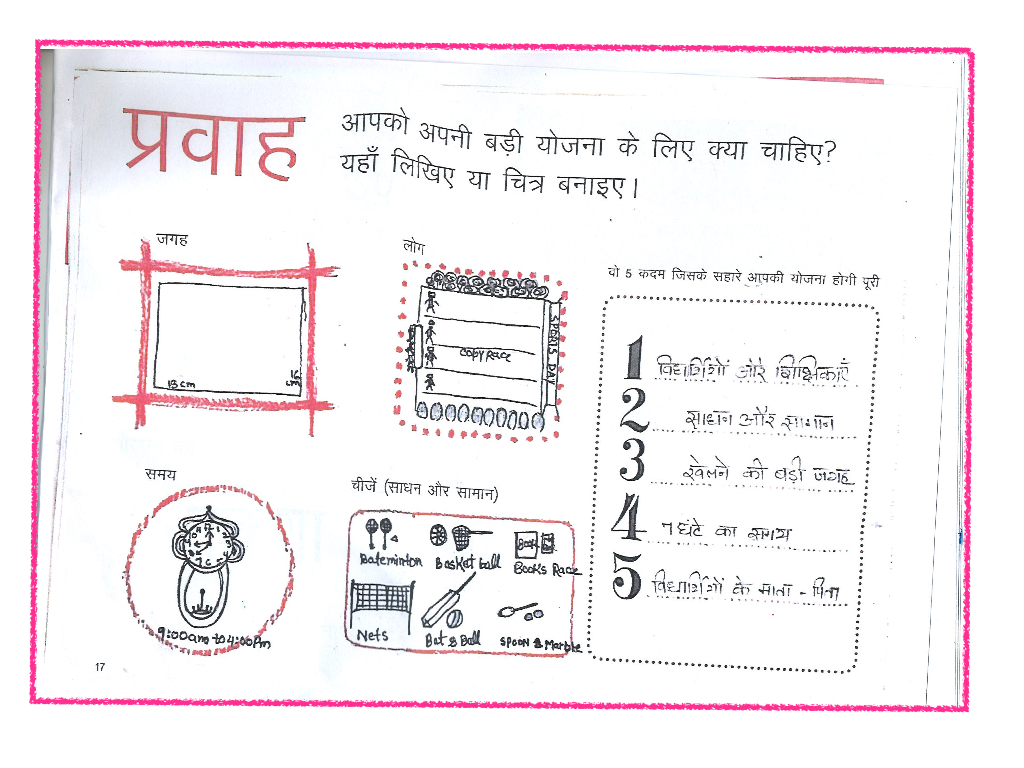 प्रवाह
आपको अपनी बड़ी योजना के लिए क्या चाहिए?
यहाँ लिखिए या चित्र बनाइए।
जगह
13 cm
15 cm
लोग
Copy Race
SPORTS DAY
समय
9:00am to 4:00Pm
चीजें (साधन और सामान)
Bateminton
Basket ball
Book
Books Race
Nets
Bat & Ball
SPOON & Marble
वो 5 कदम जिसके सहारे आपकी योजना होगी पूरी
1 विद्यार्थिगों और शिक्षिकाएँ
2 साधन और सामान
3 खेलने की बड़ी जगह
4 7 घंटे का समय
5 विद्यार्थिगों के माता - पिता
17